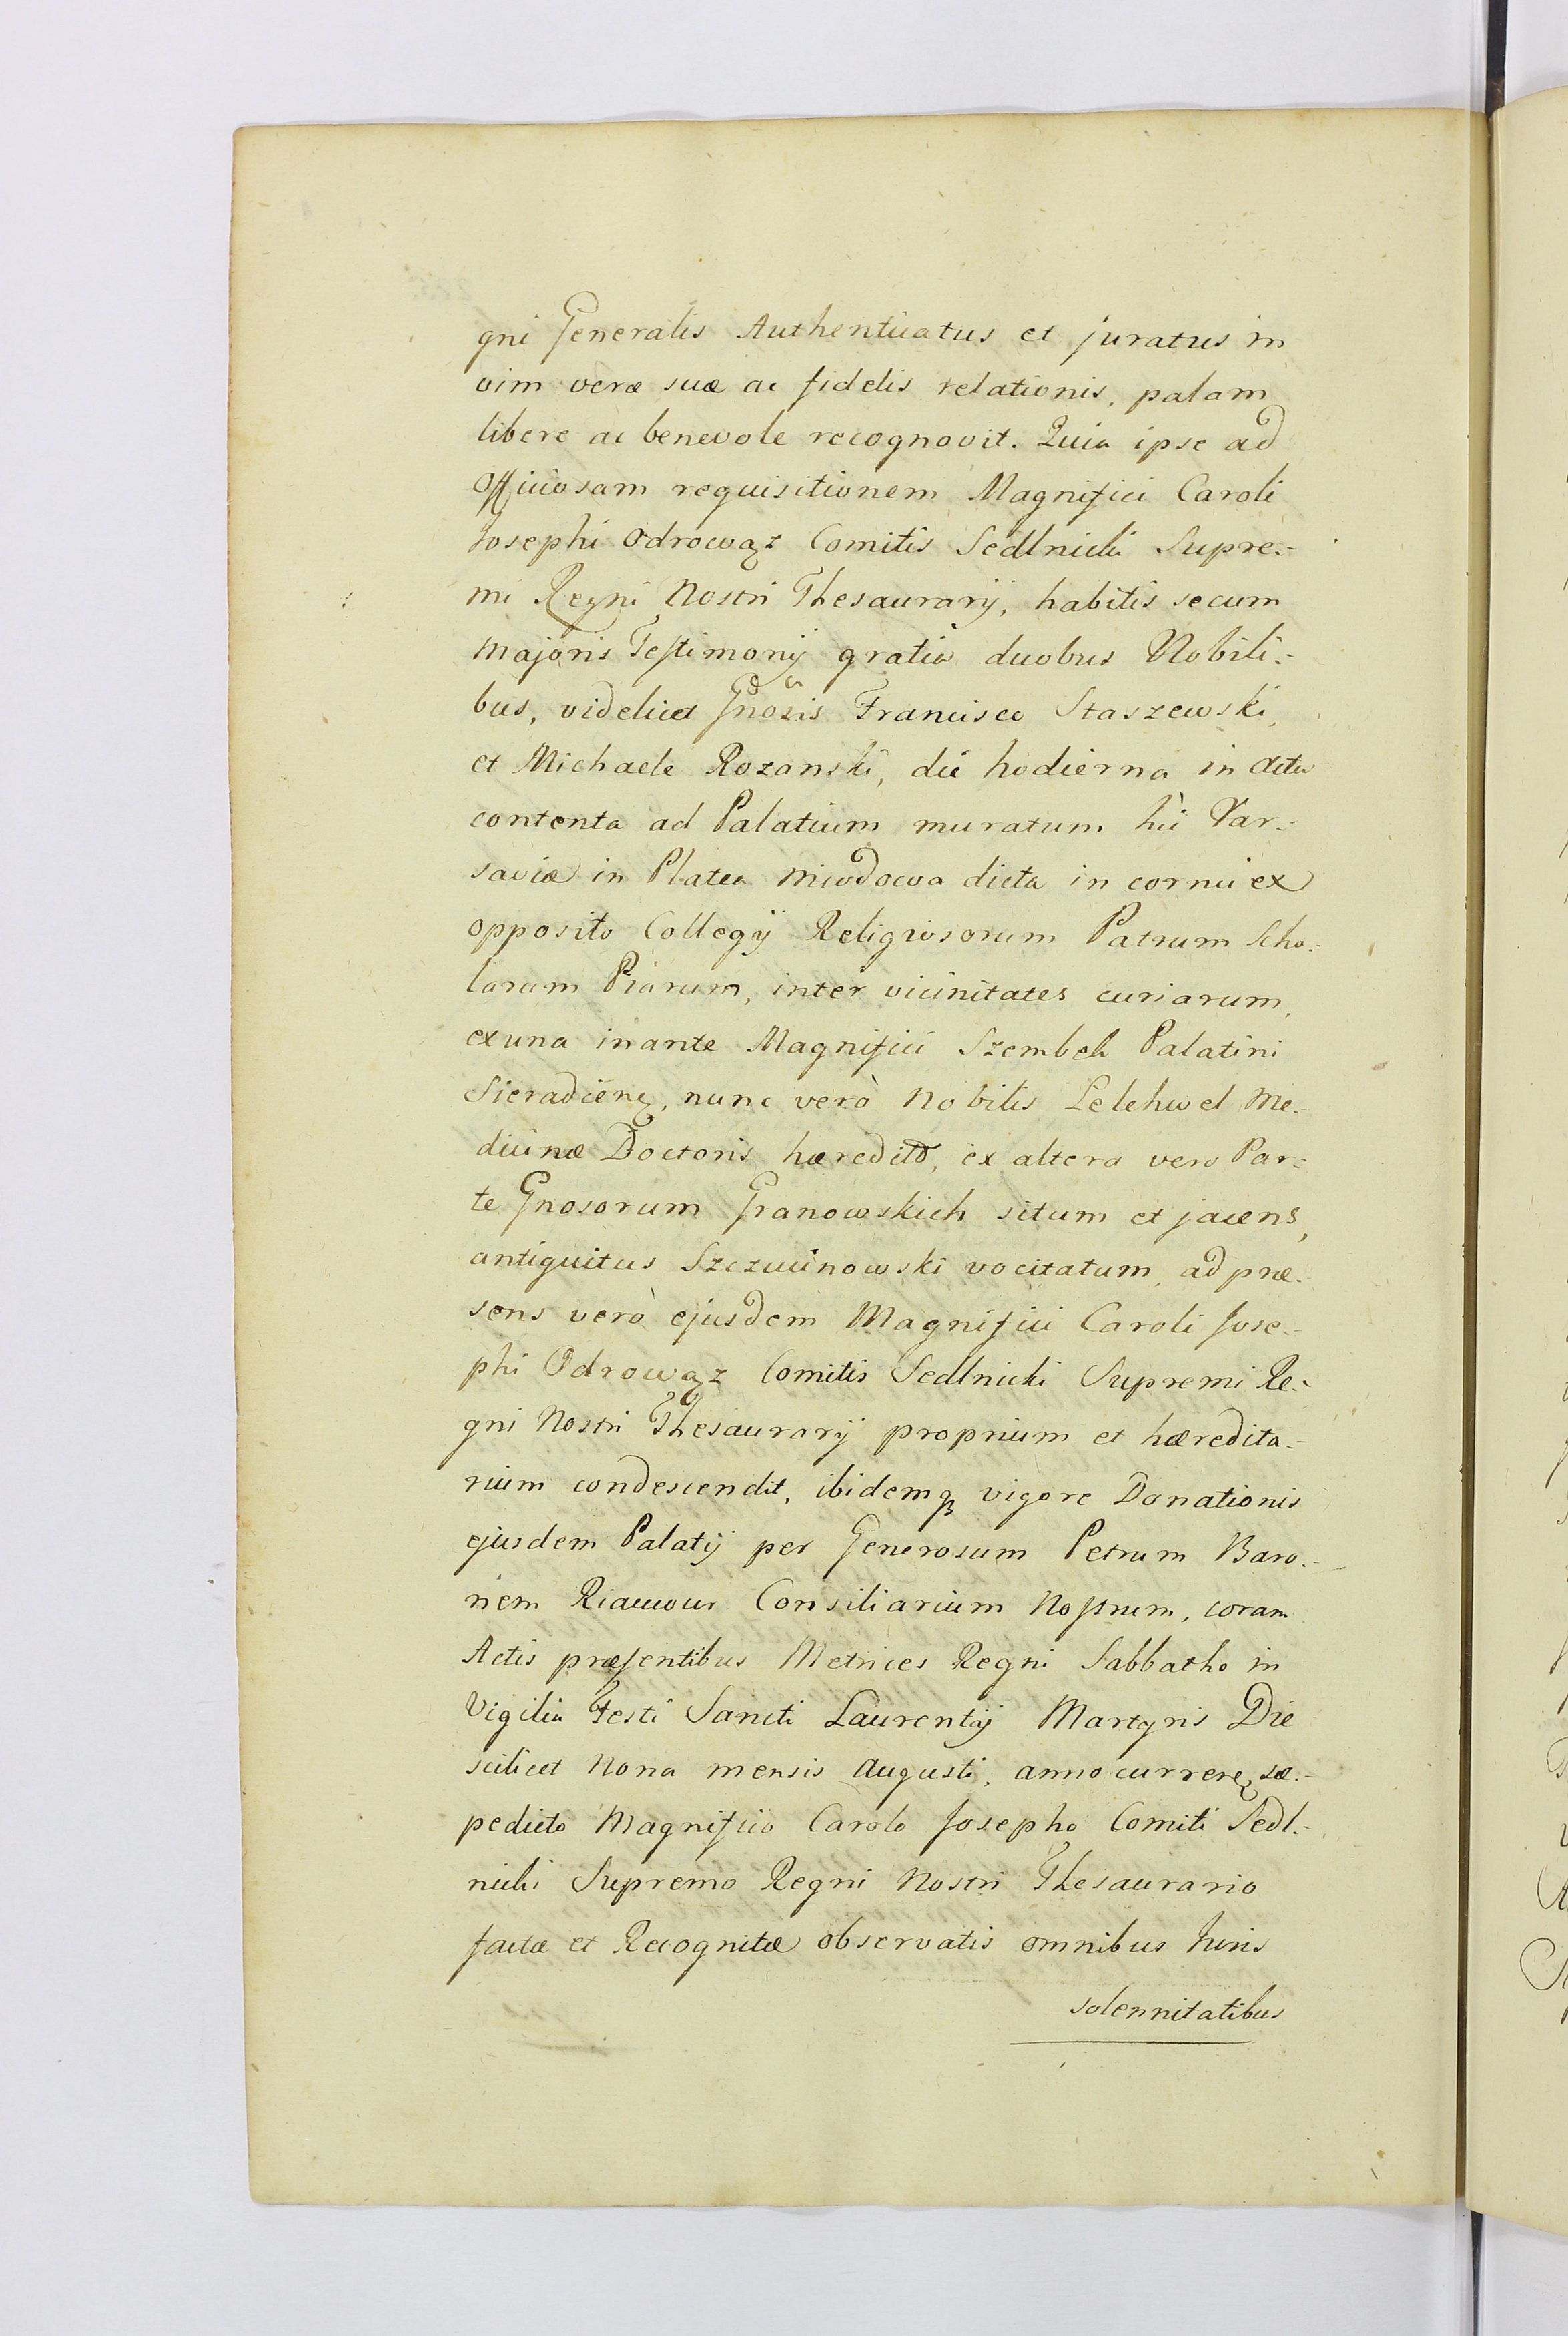 gni Generalis Authenticatus et juratus in
vim veræ suæ ac fidelis relationis, palam
libere ac benevole recognovit. Quia ipse ad
Officiosam requisitionem Magnifici Caroli
Josephi Odrowąz Comitis Sedlnicki Supre.-
mi Regni Nostri Thesaurarÿ, habitis secum
majoris Testimonÿ gratia duobus Nobili.-
bus, videlicet Gnosis Francisco Staszewski,
et Michaele Rozanski, die hodierna in actu
contenta ad Palatium muratum hic Var.-
saviæ in Platea Miodowa dicta in cornu ex
opposito Collegÿ Religiosorum Patrum Scho.-
larum Piarum, inter vicinitates curiarum,
ex una inante Magnifici Szembek Palatini
Sieradieñ, nunc verò Nobilis Lelehwel Me.-
dicinæ Doctoris hæredit, ex altera vero Par.-
te Gnosorum Granowskich situm et jacens,
antiquitus Szczucinowski vocitatum, ad præ.-
sens verò ejusdem Magnifici Caroli Jose.-
phi Odrowąz Comitis Sedlnicki Supremi Re.-
gni Nostri Thesaurarÿ proprium et hæredita.-
rium condescendit, ibidemq vigore Donationis
ejusdem Palatÿ per Generosum Petrum Baro.-
nem Riaucour Consiliarium Nostrum, coram
Actis præsentibus Metrices Regni Sabbatho in
Vigilia Festi Sancti Laurentÿ Martyris Die
scilicet Nona mensis Augusti, anno curreñ, sæ.-
pedicto Magnifico Carolo Josepho Comiti Sedl.-
nicki Supremo Regni Nostri Thesaurario
factæ et Recognitæ observatis omnibus Juris
solennitatibus